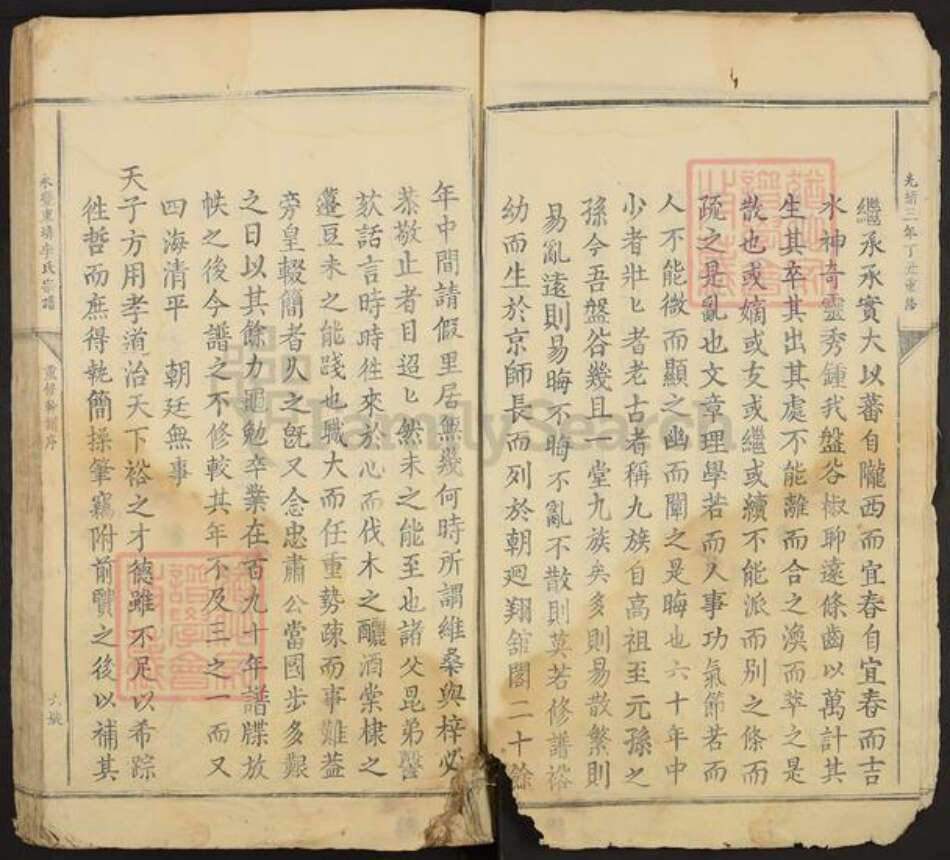 光緒三年丁丑重修
繼承承實大以蕃自隴西而宜春自宜春而吉
水神奇靈秀鍾我盤谷椒聊遠條齒以萬計其
生其卒其出其處不能離而合之渙而萃之是
散也或嫡或支或繼或續不能派而別之條而
疏之是亂也文章理學若而人事功氣節若而
人不能微而顯之幽而闡之是晦也六十年中
少者壯匕者老古者稱九族自高祖至元孫之
孫今吾盤谷幾且一堂九族矣多則易散繁則
易亂遠則易晦不晦不亂不散則莫若修譜裕
幼而生於京師長而列於朝廻翔舘閣二十餘
年中間請假里居無幾何時所謂維桑與梓必
恭敬止者目迢匕然未之能至也諸父昆弟謦
欬話言時時徃來於心而伐木之釃酒棠棣之
籩豆未之能踐也職大而任重勢疎而事難葢
旁皇輟簡者久之旣又念忠肅 公當國步多艱
之日以其餘力黽勉卒業在百九十年譜牒放
帙之後今譜之不修較其年不及三之一而又
四海清平 朝廷無事
天子方用孝道治天下裕之才德雖不足以希踪
徃哲而庶得執簡操筆竊附前賢之後以補其
李氏宗譜
重修新譜序
六號
FamilySearch